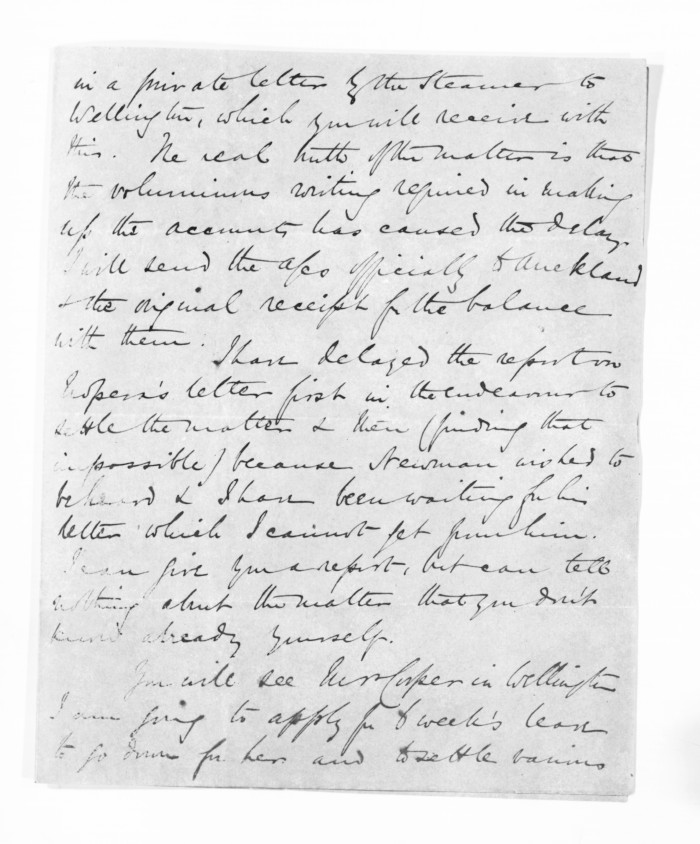 in a private letter by the Steamer to
Wellington, which you will receive with
this. The real truth of the matter is that
the voluminous writing required in making
up the accounts has caused the delay.
I will send the a/cs officially to Auckland
& the original receipt for the balance
with them.
I have delayed the report on
letter first in the endeavour to
settle the matter & then (finding that
impossible) because Newman wished to
be heard & I have been waiting for his
letter which I cannot get from him.
I can give you a report, but can tell
nothing about the matter that you don't
know already yourself.
You will see Mrs Cooper in Wellington
I am going to apply for 6 week's leave
to go down for her and to settle various